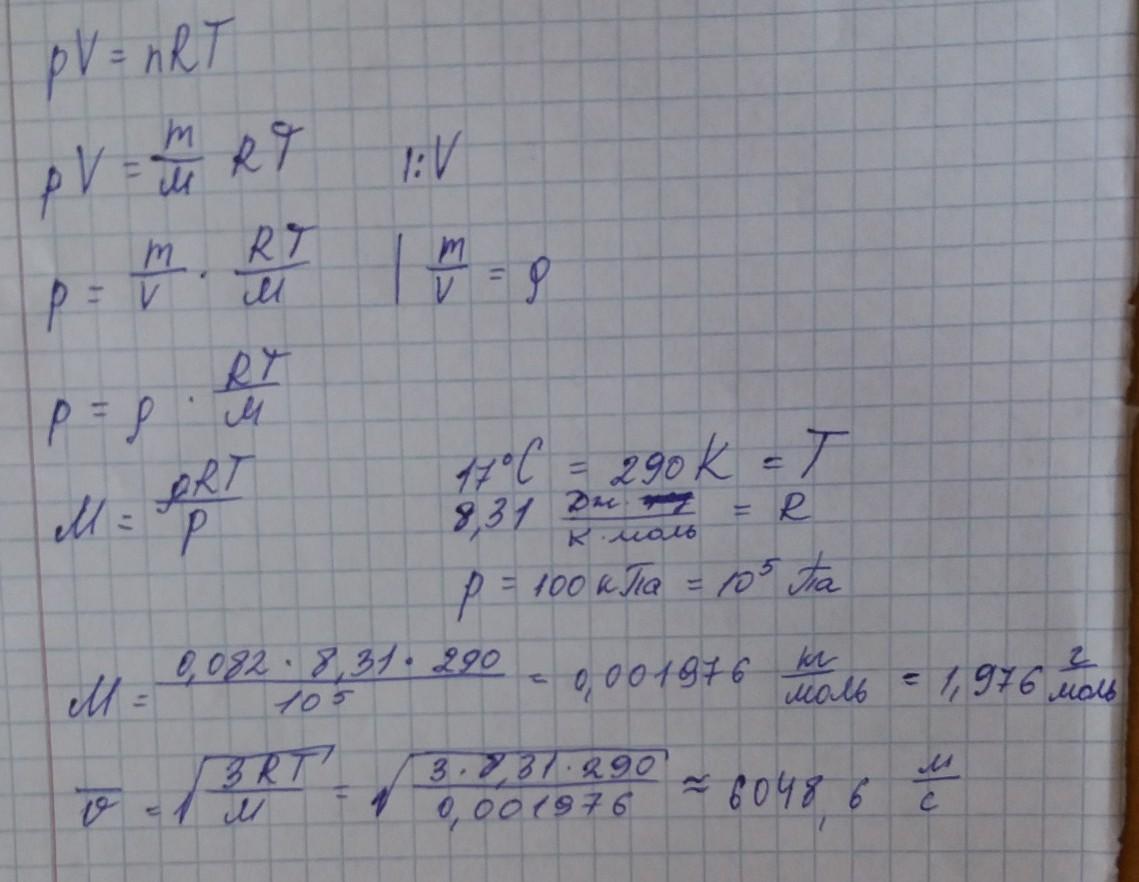 pV = nRT
pV = m/M RT |:V
p = m/V · RT/M | m/V = ρ
p = ρ · RT/M
17°C = 290 K = T
M = ρRT/p 8,31 Дж/К·моль = R
p = 100 кПа = 10⁵ Па
M = 0,082 · 8,31 · 290 / 10⁵ = 0,001976 кг/моль = 1,976 г/моль
v̅ = √(3RT/M) = √(3·8,31·290/0,001976) ≈ 6048,6 м/с